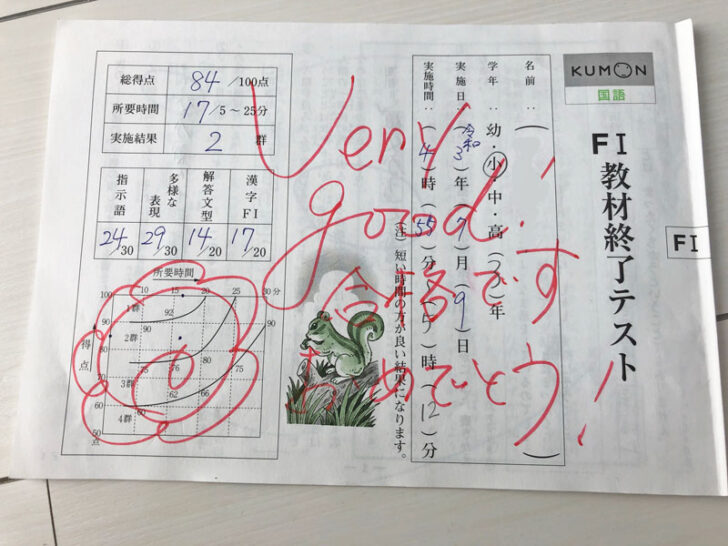 KUMON
国語
FⅠ
FⅠ教材終了テスト
名前：（　　　）
学年：幼・小・中・高（3）年
実施日：（令和3）年（7）月（9）日
実施時間：（4）時（55）分～（5）時（12）分
（注）短い時間の方が良い結果になります。
Very good!
合格です
おめでとう！
総得点 84 /100点
所要時間 17/5～25分
実施結果 2 群
漢字FⅠ 17/20
解答文型 14/20
多様な表現 29/30
指示語 24/30
所要時間
10 15 20 25 30分
得点
100
90
80
70
60
50点
1群
2群
3群
4群
92
90
90
80
76
75
62
66
60
90